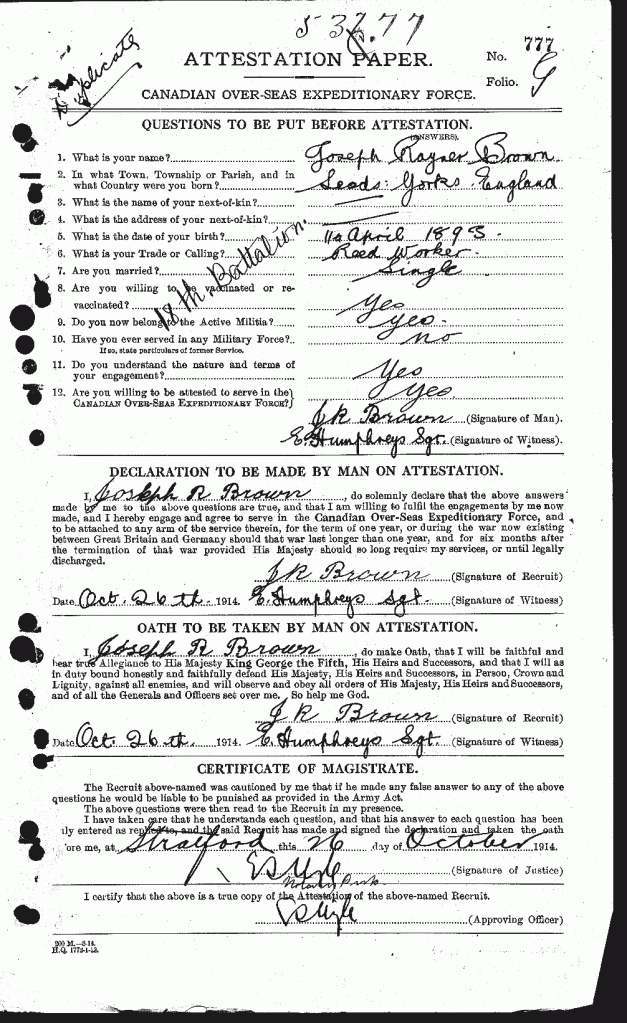 53777
777
Duplicate
ATTESTATION PAPER.
No.
Folio. G
CANADIAN OVER-SEAS EXPEDITIONARY FORCE.
QUESTIONS TO BE PUT BEFORE ATTESTATION.
(ANSWERS).
1. What is your name? Joseph Rayner Brown
2. In what Town, Township or Parish, and in
what Country were you born? Leeds. Yorks. England
3. What is the name of your next-of-kin?
4. What is the address of your next-of-kin?
5. What is the date of your birth? April 1893.
6. What is your Trade or Calling? Reed Worker.
7. Are you married? Single
8. Are you willing to be vaccinated or re-
vaccinated? Yes
18th. Battalion.
9. Do you now belong to the Active Militia? Yes.
10. Have you ever served in any Military Force? no
If so, state particulars of former Service.
11. Do you understand the nature and terms of
your engagement? Yes
12. Are you willing to be attested to serve in the
CANADIAN OVER-SEAS EXPEDITIONARY FORCE? Yes
J R Brown (Signature of Man).
E. Humphreys Sgt. (Signature of Witness).
DECLARATION TO BE MADE BY MAN ON ATTESTATION.
I, Joseph R Brown, do solemnly declare that the above answers
made by me to the above questions are true, and that I am willing to fulfil the engagements by me now
made, and I hereby engage and agree to serve in the Canadian Over-Seas Expeditionary Force, and
to be attached to any arm of the service therein, for the term of one year, or during the war now existing
between Great Britain and Germany should that war last longer than one year, and for six months after
the termination of that war provided His Majesty should so long require my services, or until legally
discharged.
J R Brown (Signature of Recruit)
Date Oct. 26th. 1914. E. Humphreys Sgt. (Signature of Witness)
OATH TO BE TAKEN BY MAN ON ATTESTATION.
I, Joseph R Brown, do make Oath, that I will be faithful and
bear true Allegiance to His Majesty King George the Fifth, His Heirs and Successors, and that I will as
in duty bound honestly and faithfully defend His Majesty, His Heirs and Successors, in Person, Crown and
Dignity, against all enemies, and will observe and obey all orders of His Majesty, His Heirs and Successors,
and of all the Generals and Officers set over me. So help me God.
J R Brown (Signature of Recruit)
Date Oct. 26th. 1914. E. Humphreys Sgt. (Signature of Witness)
CERTIFICATE OF MAGISTRATE.
The Recruit above-named was cautioned by me that if he made any false answer to any of the above
questions he would be liable to be punished as provided in the Army Act.
The above questions were then read to the Recruit in my presence.
I have taken care that he understands each question, and that his answer to each question has been
ly entered as replied to, and the said Recruit has made and signed the declaration and taken the oath
ore me, at Stratford this 26 day of October 1914.
(Signature of Justice)
Notary Pub.
I certify that the above is a true copy of the Attestation of the above-named Recruit.
(Approving Officer)
200 M.—8-14.
H.Q. 1772-1-13.